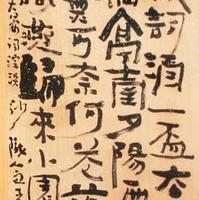 詞酒一盃去
亭臺夕陽西
可奈何花落
燕歸來小園
晏詞浣溪沙